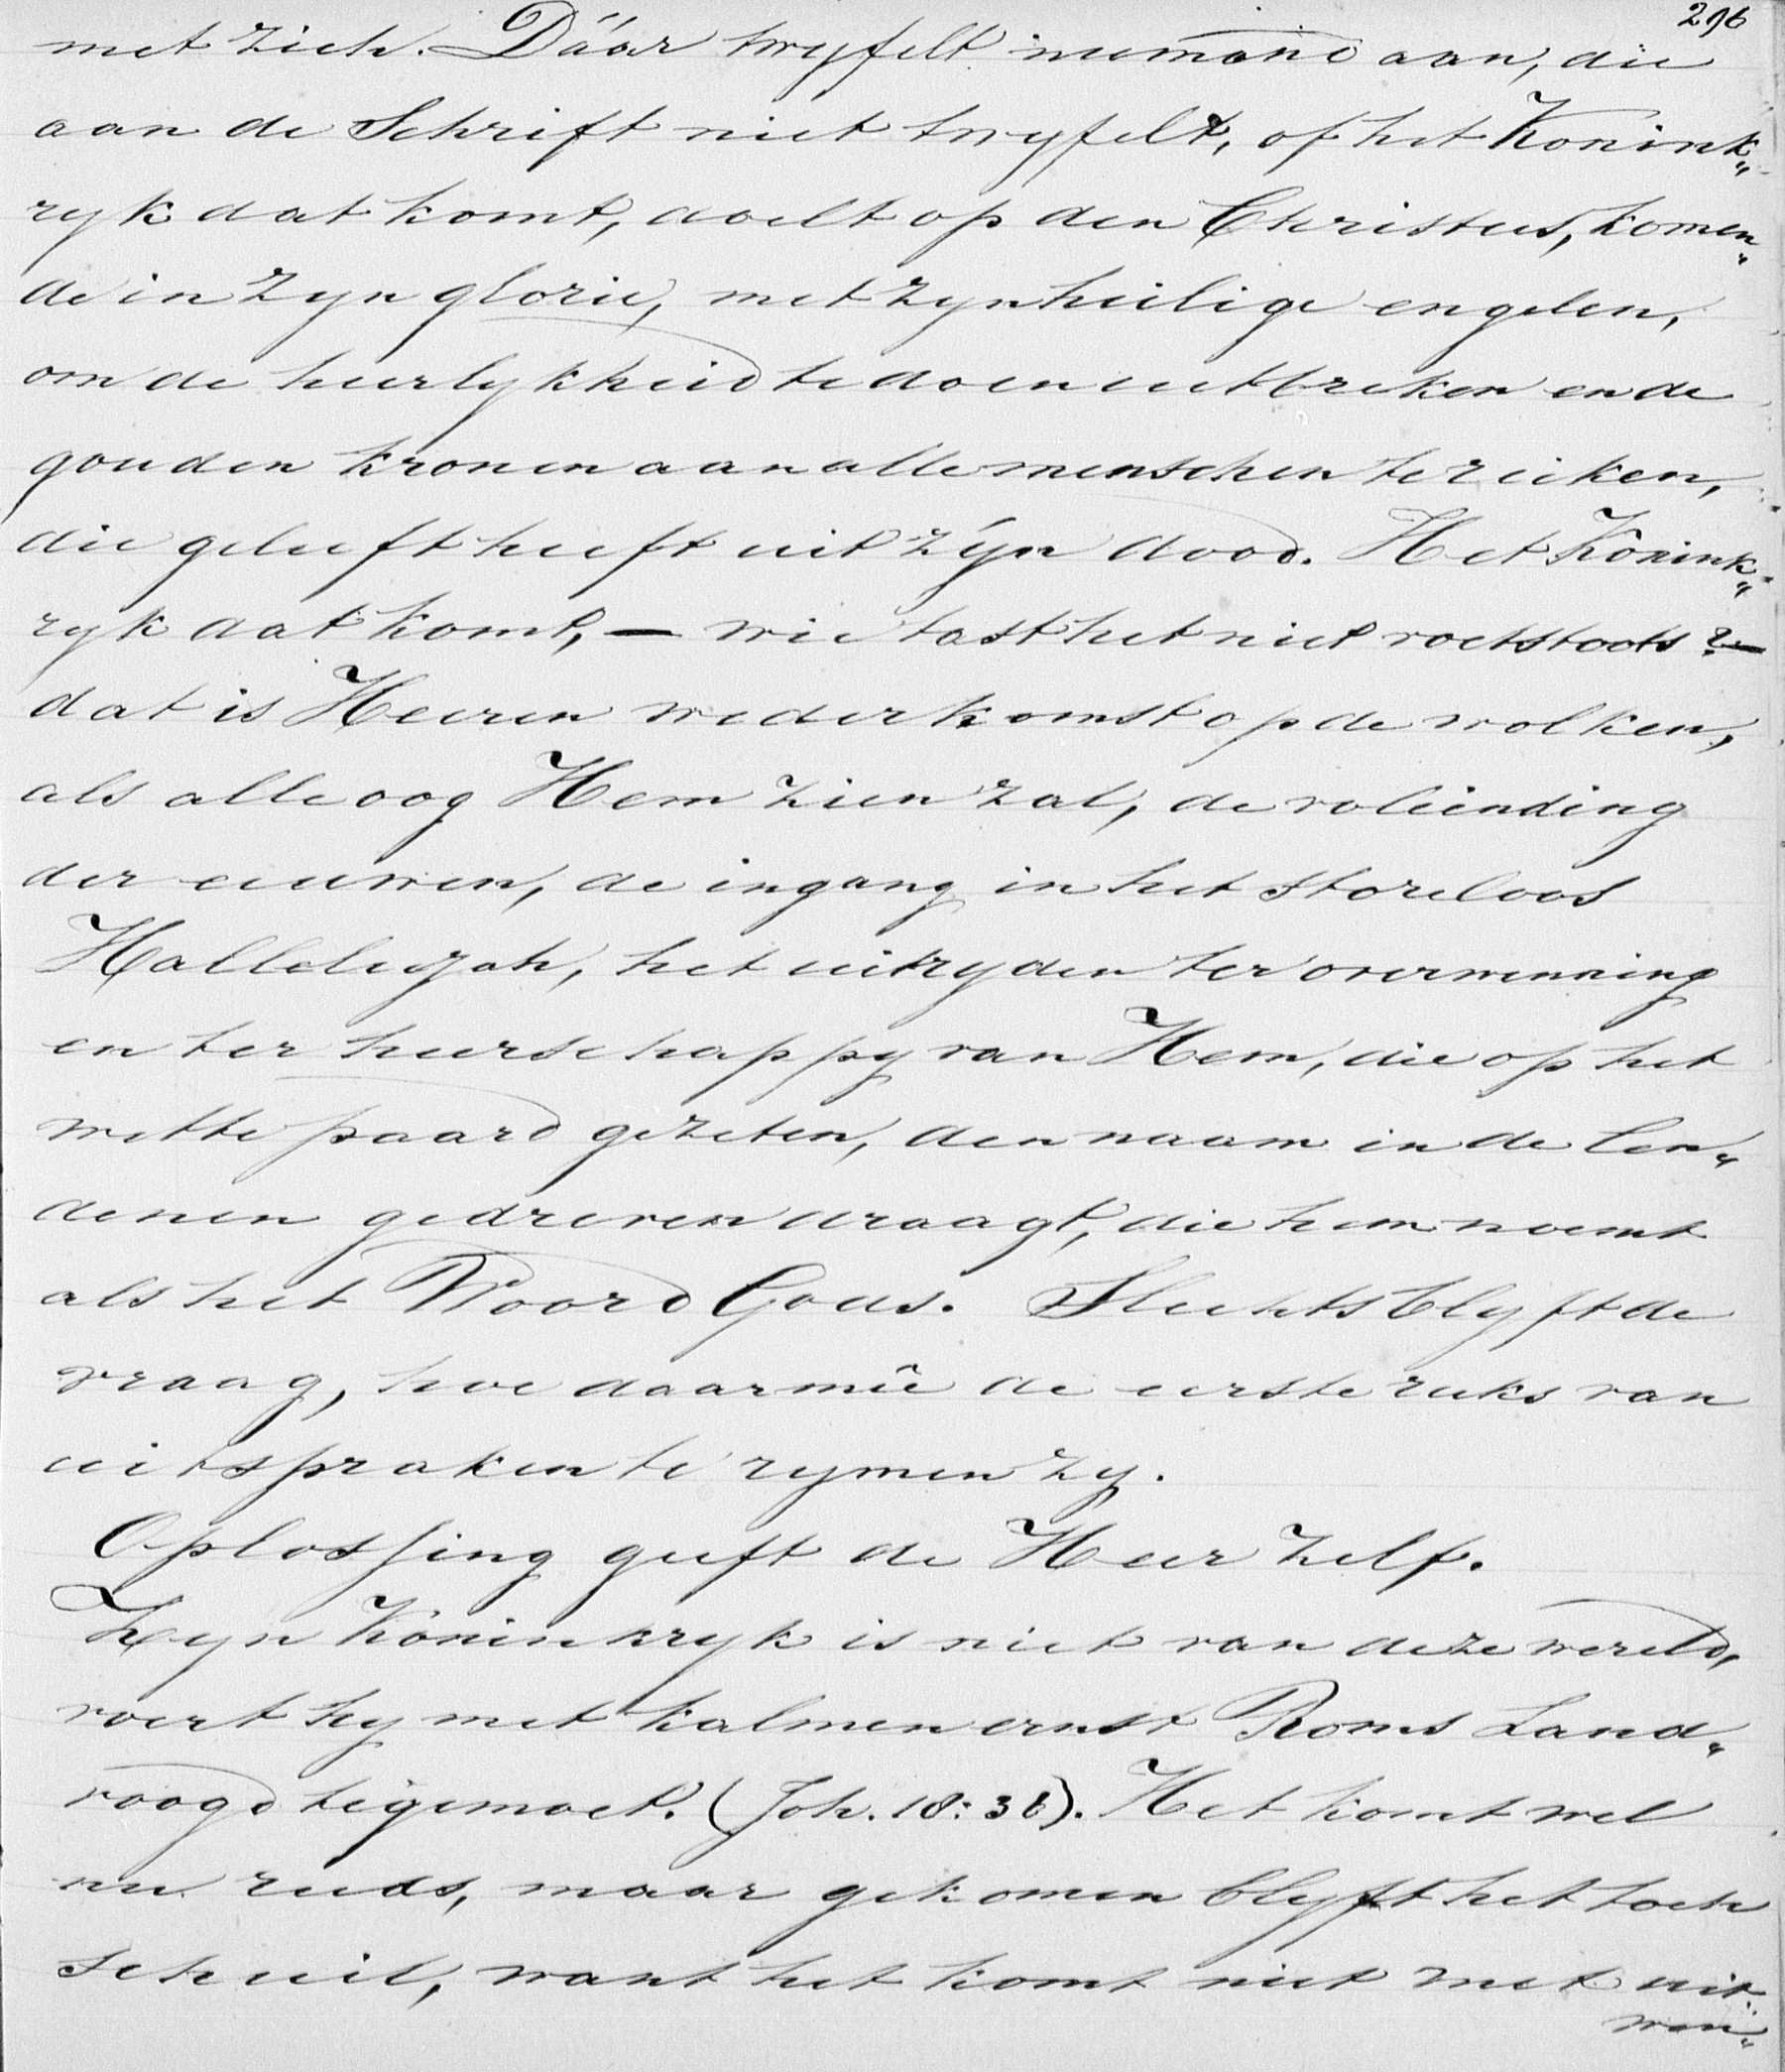 296
met zich. Dáár twyfelt niemand aan, die
aan de Schrift niet twyfelt, of het Konink„
ryk dat komt, doelt op den Christus, komen„
de in zyn glorie, met zyn heilige engelen,
om de heerlykheid te doen uitbreken en de
gouden kronen aan alle menschen te reiken,
die geleeft heeft uit zýn dood. Het Konink„
ryk dat komt, — wie tast het niet voetstoots? —
dat is Heeren wederkomst op de wolken,
als alle oog Hem zien zal, de voleinding
der eeuwen, de ingang in het storeloos
Hallelujah, het uitryden ter overwinning
en ter heerschappy van Hem, die op het
witte paard gezeten, den naam in de len„
denen gedreven draagt, die hem noemt
als het Woord Gods. Slechts blyft de
vraag, hoe daarmeê de eerste reeks van
uitspraken te rymen zy.
Oplossing geeft de Heer zelf.
Zyn Koninkryk is niet van deze wereld,
voert hy met kalmen ernst Roms Land„
voogd tegemoet. (Joh. 18:36). Het komt wel
nu reeds, maar gekomen blyft het toch
schuil, want het komt niet met uit„
wen„